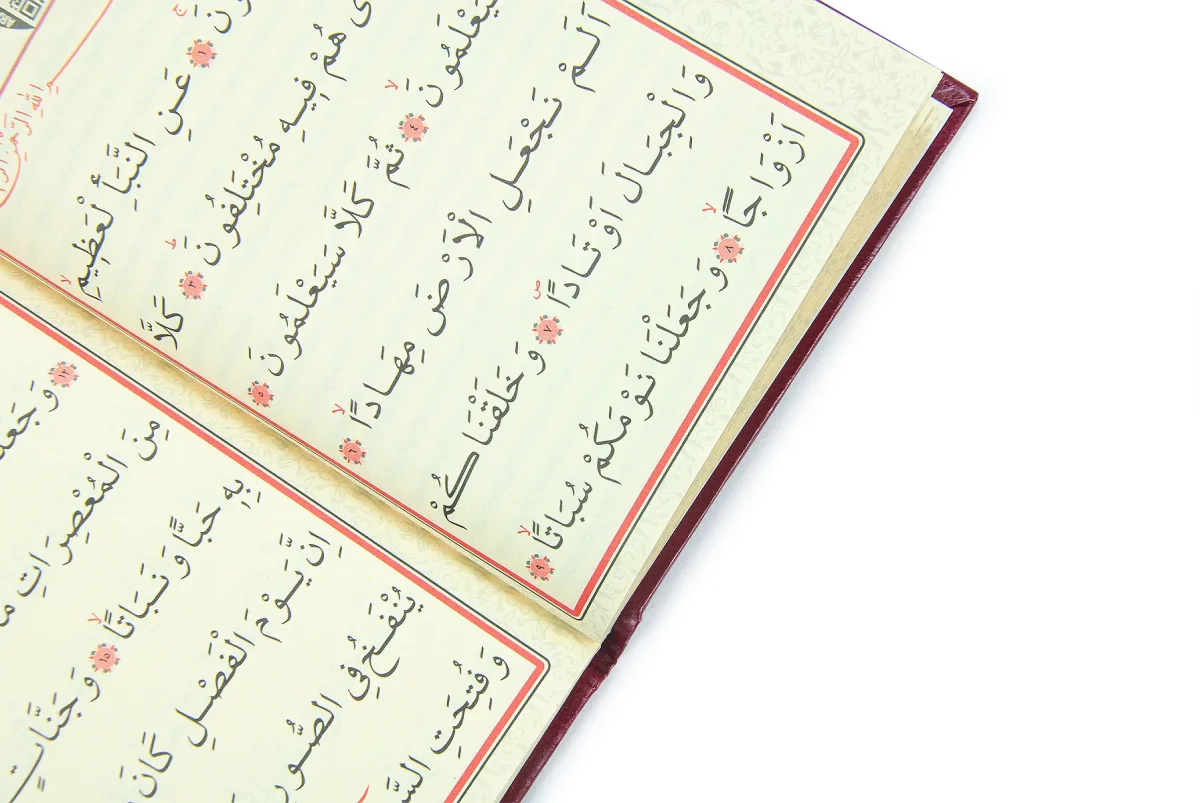 اللهِ الرَّحْمٰنِ
ونَ ۝١ عَنِ النَّبَأِ لْعَظِيمِ
هُمْ فِيهِ مُخْتَلِفُونَ ۝٣ كَلَّا
سَيَعْلَمُونَ ۝٤ ثُمَّ كَلَّا سَيَعْلَمُونَ ۝٥
اَلَمْ نَجْعَلِ الْاَرْضَ مِهَادًا ۝٦
وَالْجِبَالَ اَوْتَادًا ۝٧ وَخَلَقْنَاكُمْ
اَزْوَاجًا ۝٨ وَجَعَلْنَا نَوْمَكُمْ سُبَاتًا ۝٩
۝١٢ وَجَعَلْ
مِنَ الْمُعْصِرَاتِ مَا
بِهِ حَبًّا وَنَبَاتًا ۝١٥ وَجَنَّاتٍ
اِنَّ يَوْمَ الْفَصْلِ كَانَ
يُنْفَخُ فِي الصُّورِ
وَفُتِحَتِ السَّ